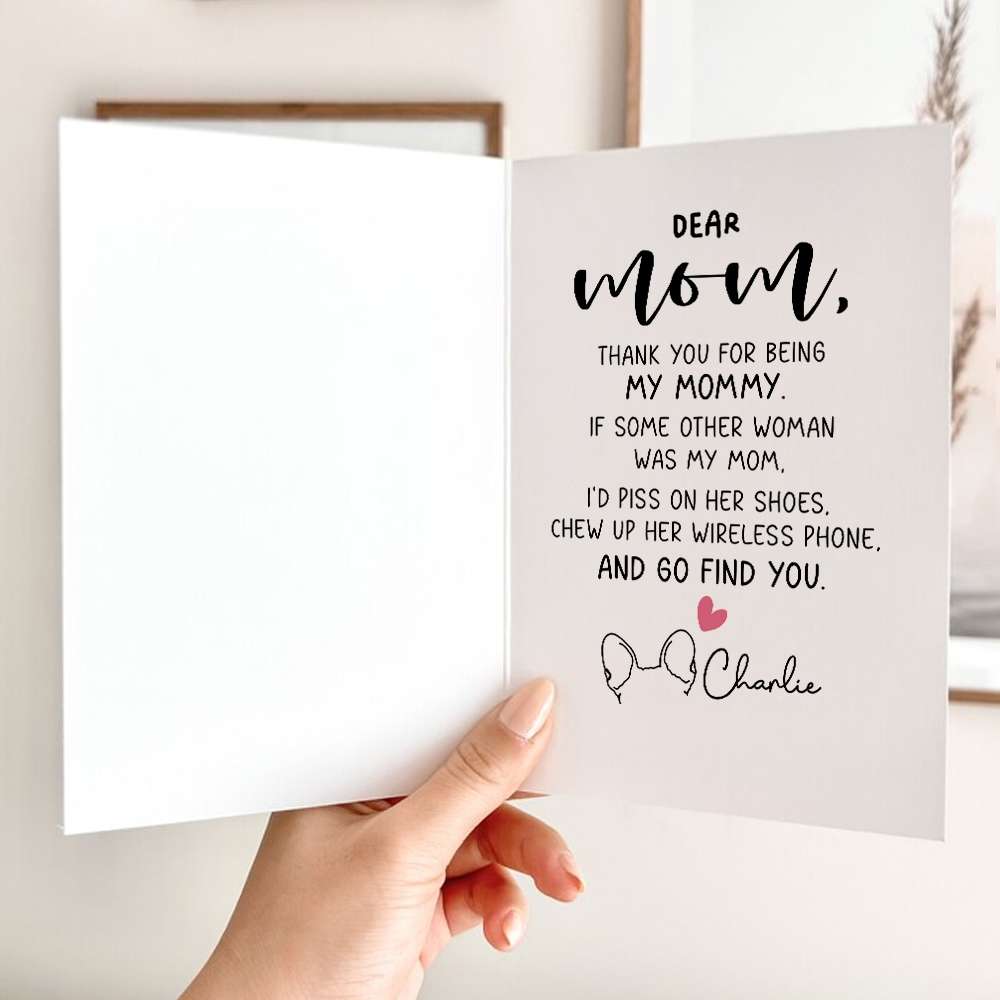 DEAR
mom,
THANK YOU FOR BEING
MY MOMMY.
IF SOME OTHER WOMAN
WAS MY MOM,
I'D PISS ON HER SHOES,
CHEW UP HER WIRELESS PHONE,
AND GO FIND YOU.
Charlie